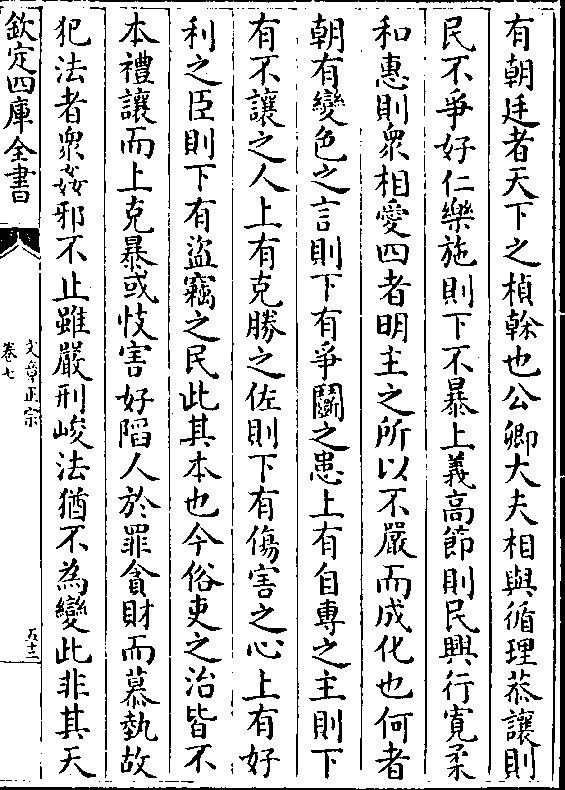 有朝廷者天下之楨榦也公卿大夫相與循理恭讓則
民不爭好仁樂施則下不暴上義高節則民興行寛柔
和惠則衆相愛四者明主之所以不嚴而成化也何者
朝有變色之言則下有爭鬬之患上有自專之主則下
有不讓之人上有克勝之佐則下有傷害之心上有好
利之臣則下有盜竊之民此其本也今俗吏之治皆不
本禮讓而上克暴或忮害好陷人於罪貪財而慕埶故
犯法者衆姦邪不止雖嚴刑峻法猶不為變此非其天
欽定四庫全書
文章正宗
卷七
五十二